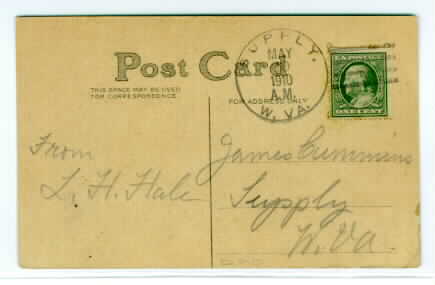 SUPPLY.
MAY
1910
A.M.
W. VA.
U.S. POSTAGE
ONE CENT
Post Card
THIS SPACE MAY BE USED
FOR CORRESPONDENCE.
FOR ADDRESS ONLY
From
L. H. Hale
James Cummins
Supply
W. Va.